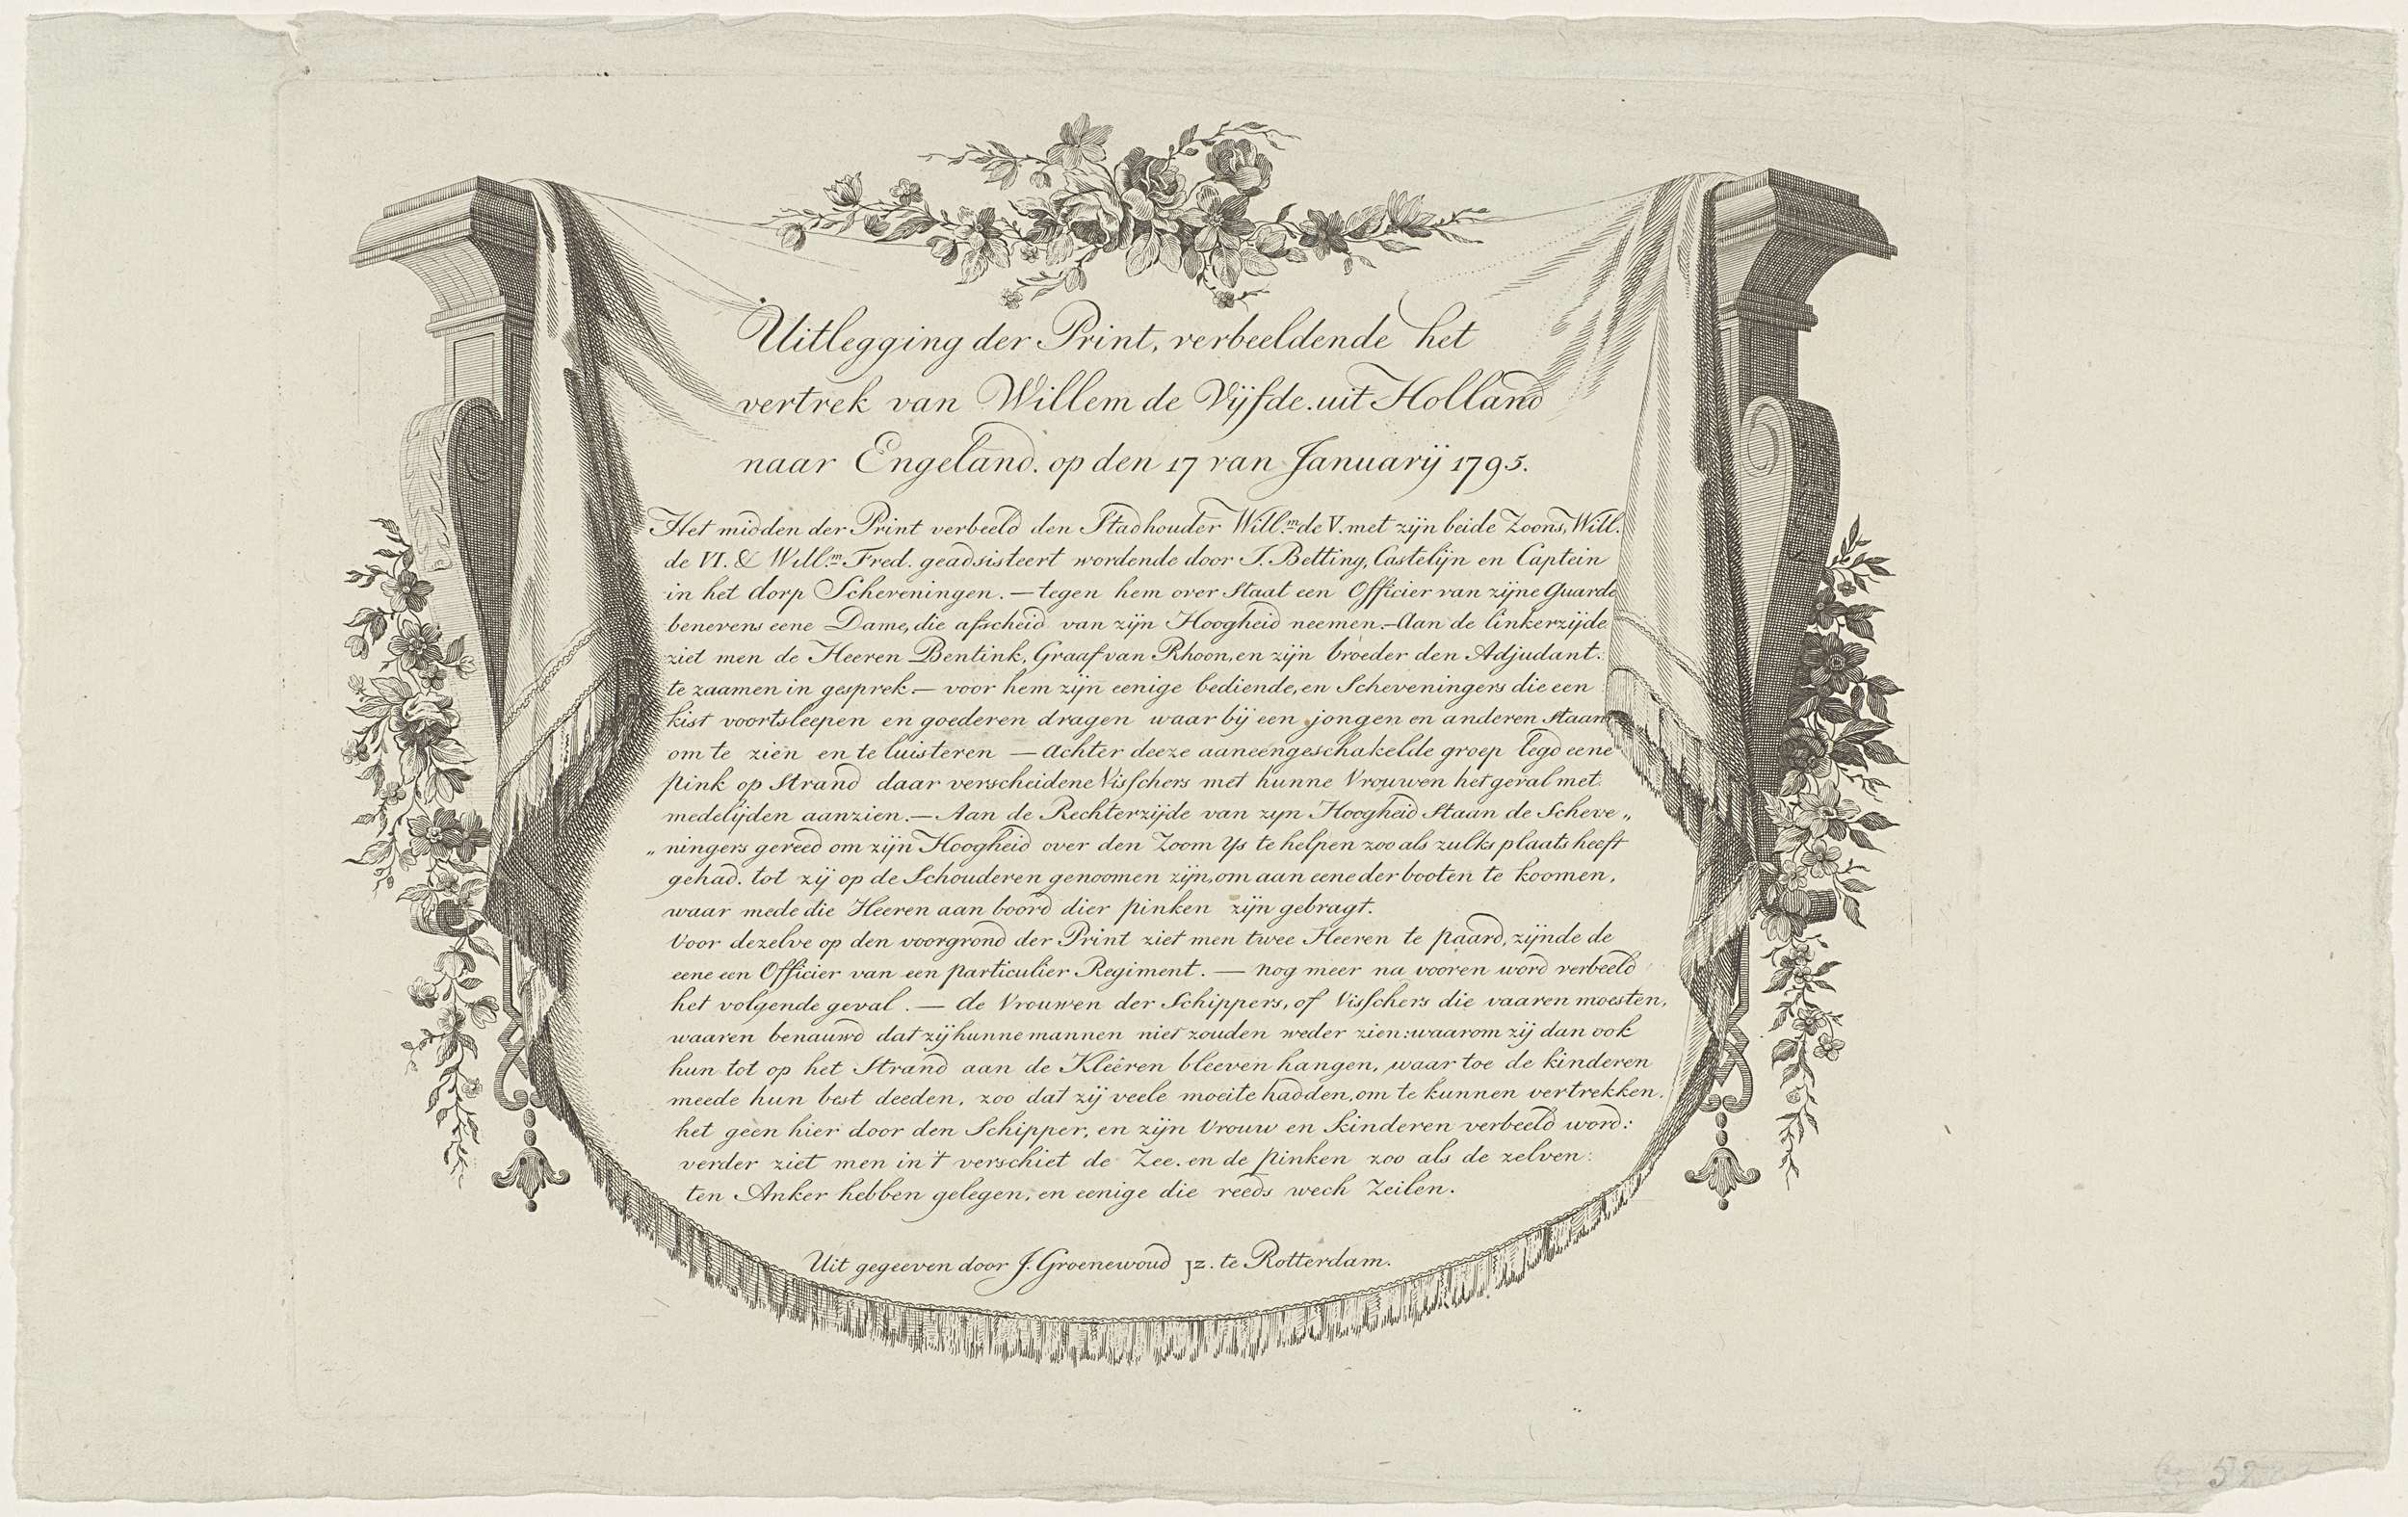 Uitlegging der Print, verbeeldende het
vertrek van Willem de Vijfde. uit Holland
naar Engeland. op den 17 van Januarij 1795.
Het midden der Print verbeeld den Stadhouder Will.m de V. met zijn beide Zoons, Will.
de VI. & Will.m Fred. geadsisteert wordende door J. Betting, Castelijn en Captein
in het dorp Scheveningen. — tegen hem over staat een Officier van zijne Guarde
benevens eene Dame, die afscheid van zijn Hoogheid neemen. — Aan de linkerzijde
ziet men de Heeren Bentink, Graaf van Rhoon, en zijn broeder den Adjudant:
te zaamen in gesprek. — voor hem zijn eenige bediende, en Scheveningers die een
kist voortsleepen en goederen dragen waar bij een jongen en anderen staan
om te zien en te luisteren — achter deeze aaneengeschakelde groep legd eene
pink op strand daar verscheidene Visschers met hunne Vrouwen het geval met
medelijden aanzien. — Aan de Rechterzijde van zyn Hoogheid staan de Scheve„
„ningers gereed om zijn Hoogheid over den Zoom Ys te helpen zoo als zulks plaats heeft
gehad. tot zij op de Schouderen genoomen zijn, om aan eene der booten te koomen,
waar mede die Heeren aan boord dier pinken zijn gebragt.
Voor dezelve op den voorgrond der Print ziet men twee Heeren te paard, zijnde de
eene een Officier van een particulier Regiment. — nog meer na vooren word verbeeld
het volgende geval. — de Vrouwen der Schippers, of Visschers die vaaren moesten,
waaren benauwd dat zij hunne mannen niet zouden weder zien: waarom zij dan ook
hun tot op het strand aan de Kleêren bleeven hangen, waar toe de kinderen
meede hun best deeden, zoo dat zij veele moeite hadden, om te kunnen vertrekken.
het geen hier door den Schipper, en zijn Vrouw en kinderen verbeeld word:
verder ziet men in 't verschiet de Zee. en de pinken zoo als de zelven:
ten Anker hebben gelegen, en eenige die reeds wech Zeilen.
Uit gegeeven door J. Groenewoud Jz. te Rotterdam.